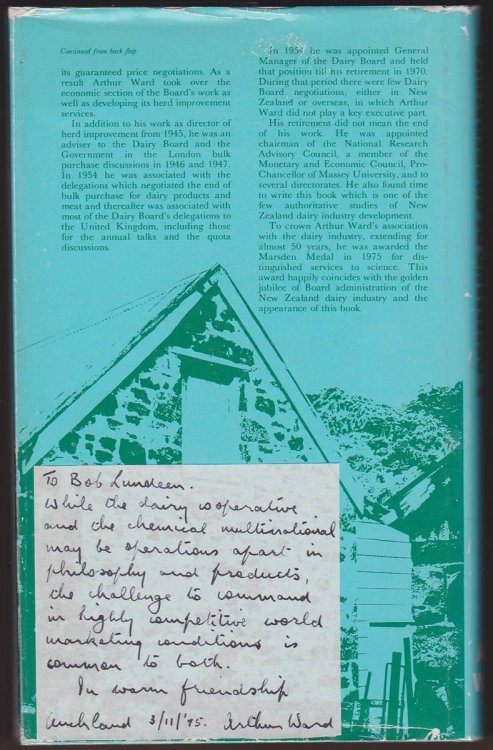 Continued from back flap
its guaranteed price negotiations. As a
result Arthur Ward took over the
economic section of the Board's work as
well as developing its herd improvement
services.
In addition to his work as director of
herd improvement from 1945, he was an
adviser to the Dairy Board and the
Government in the London bulk
purchase discussions in 1946 and 1947.
In 1954 he was associated with the
delegations which negotiated the end of
bulk purchase for dairy products and
meat and thereafter was associated with
most of the Dairy Board's delegations to
the United Kingdom, including those
for the annual talks and the quota
discussions.
In 1954 he was appointed General
Manager of the Dairy Board and held
that position till his retirement in 1970.
During that period there were few Dairy
Board negotiations, either in New
Zealand or overseas, in which Arthur
Ward did not play a key executive part.
His retirement did not mean the end
of his work. He was appointed
chairman of the National Research
Advisory Council, a member of the
Monetary and Economic Council, Pro-
Chancellor of Massey University, and to
several directorates. He also found time
to write this book which is one of the
few authoritative studies of New
Zealand dairy industry development.
To crown Arthur Ward's association
with the dairy industry, extending for
almost 50 years, he was awarded the
Marsden Medal in 1975 for dis-
tinguished services to science. This
award happily coincides with the golden
jubilee of Board administration of the
New Zealand dairy industry and the
appearance of this book.
To Bob Lundeen.
While the dairy cooperative
and the chemical multinational
may be operations apart in
philosophy and products,
the challenge to command
in highly competitive world
marketing conditions is
common to both.
In warm friendship
Auckland 3/11/'75. Arthur Ward